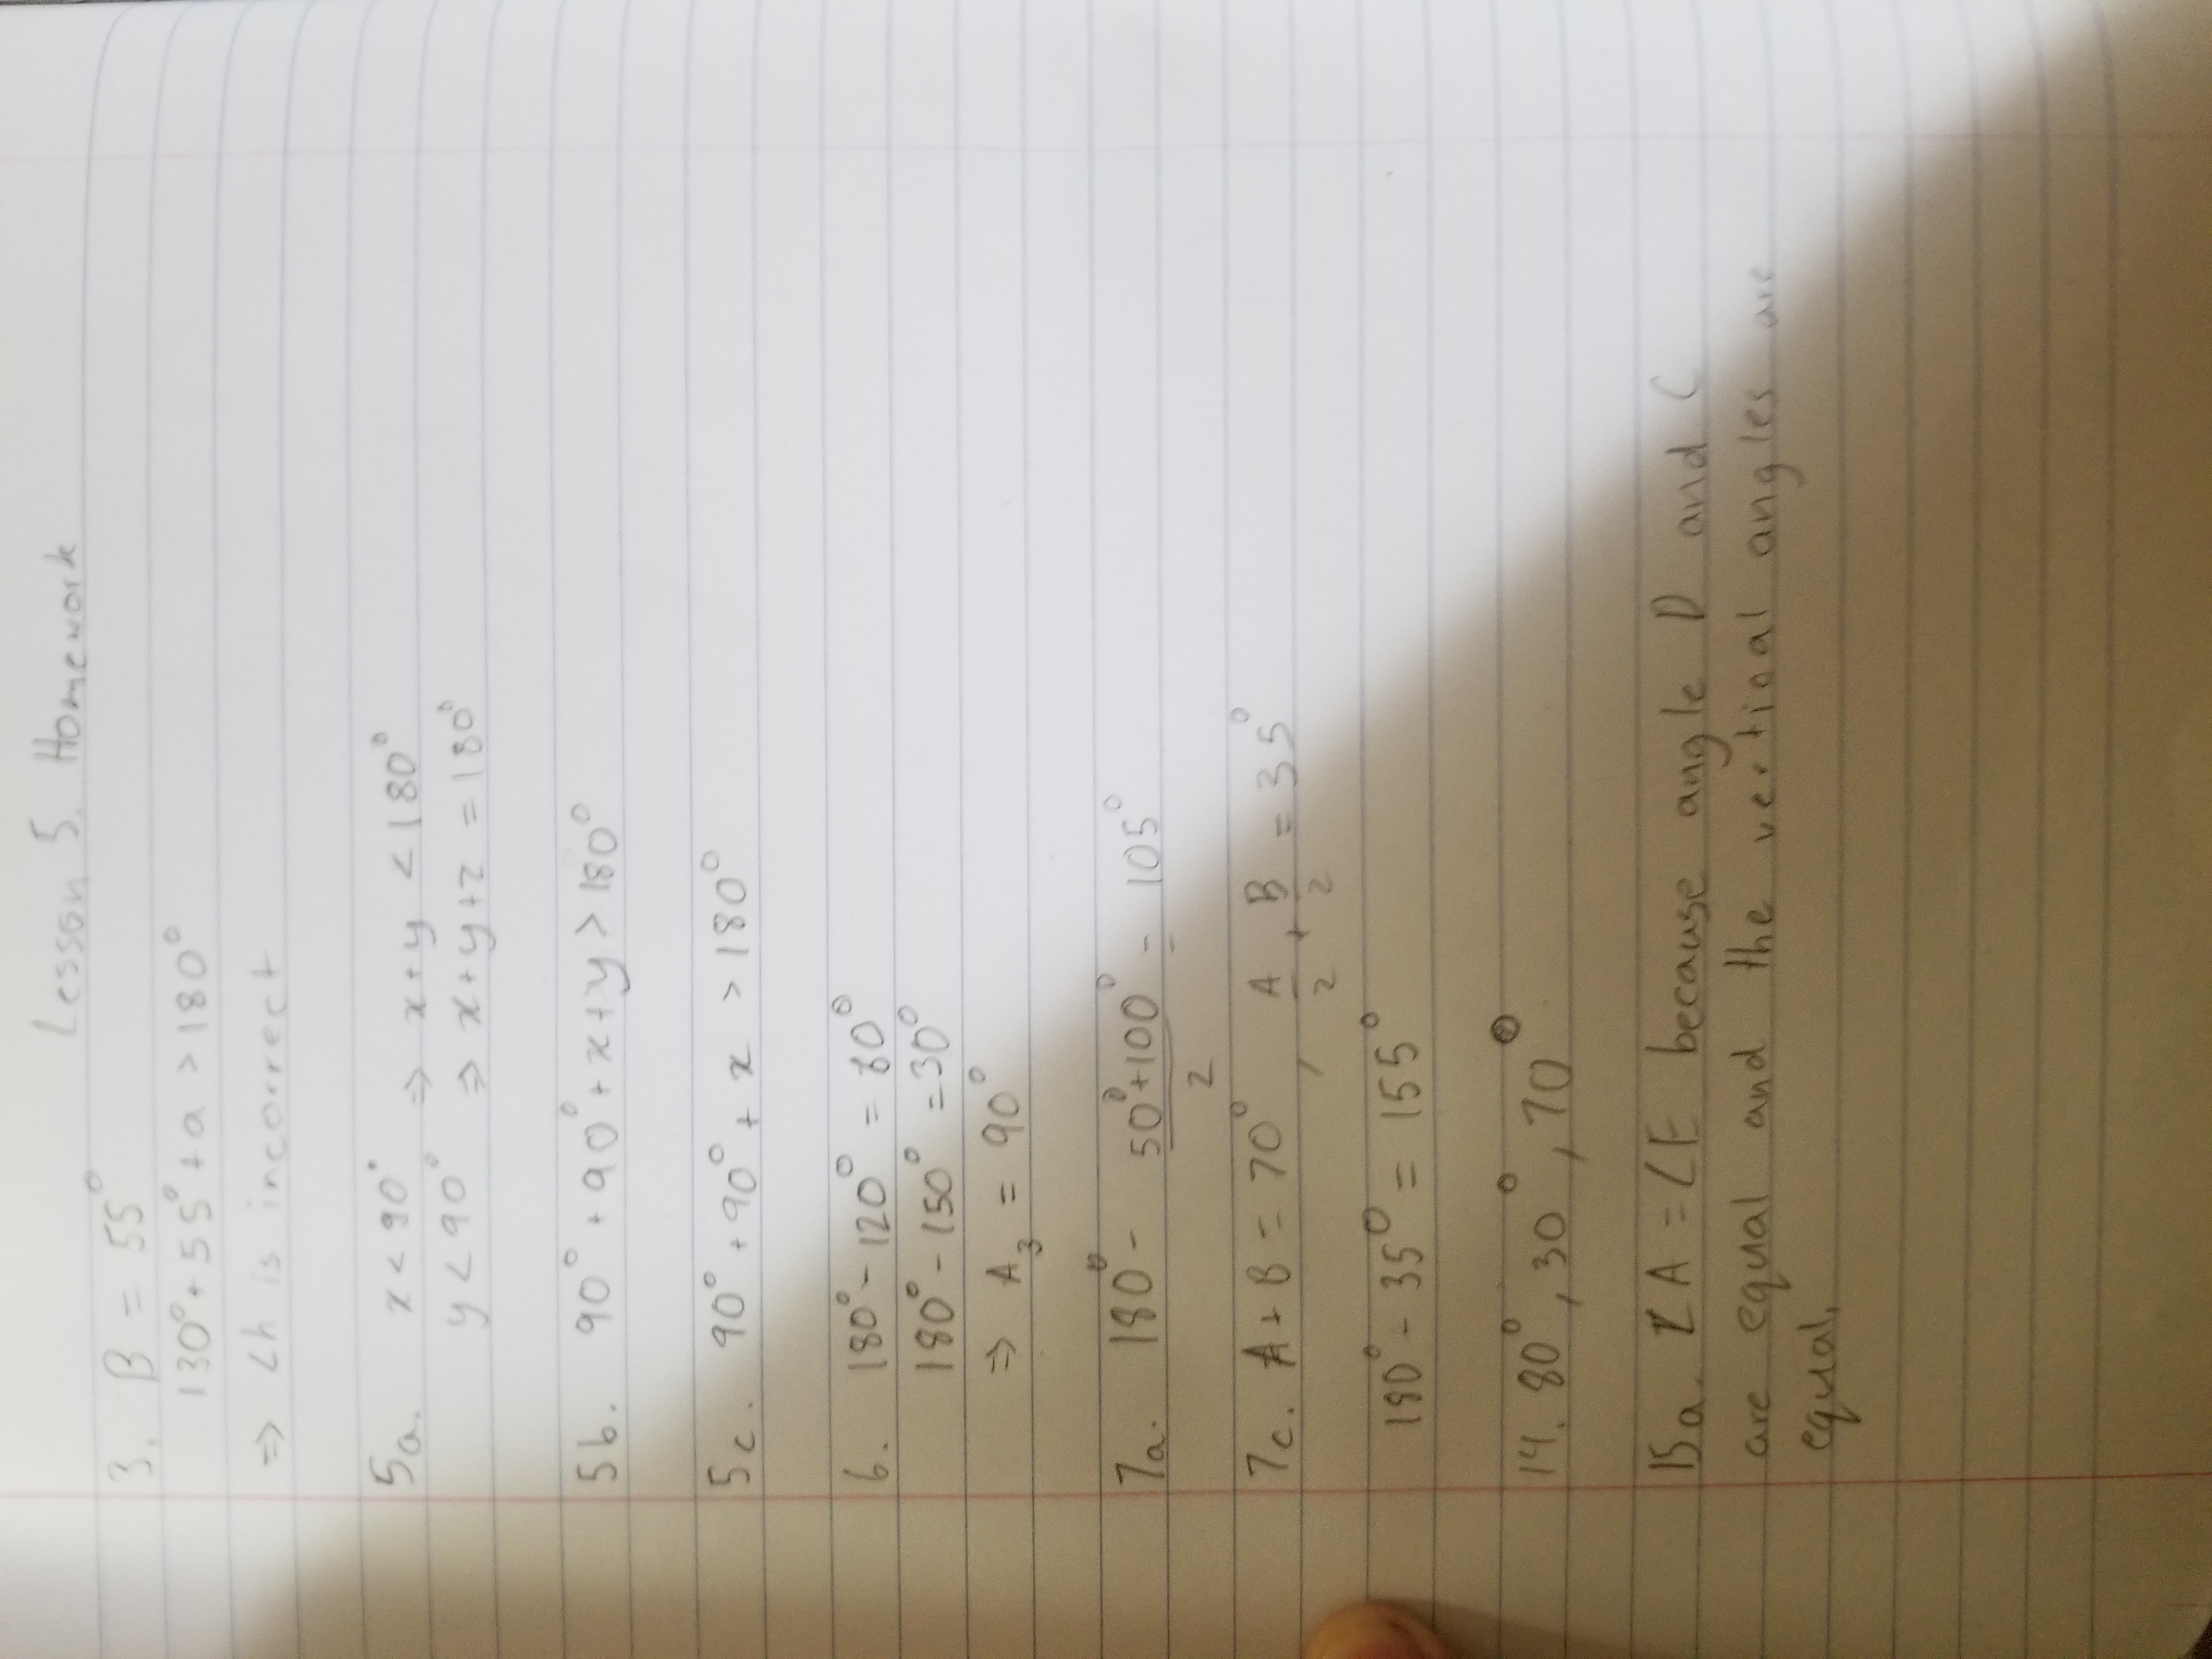 Lesson 5. Homework
3. B = 55°
130° + 55° + a > 180°
⇒ ∠h is incorrect
5a. x < 90° ⇒ x + y < 180°
y < 90° ⇒ x + y + z = 180°
5b. 90° + 90° + x + y > 180°
5c. 90° + 90° + x > 180°
6. 180° - 120° = 60°
180° - 150° = 30°
⇒ A₃ = 90°
7a. 180° - (50° + 100°)/2 = 105°
7c. A + B = 70°, A/2 + B/2 = 35°
180° - 35° = 155°
14. 80°, 30°, 70°
15a. ∠A = ∠E because angle D and C
are equal and the vertical angles are
equal.